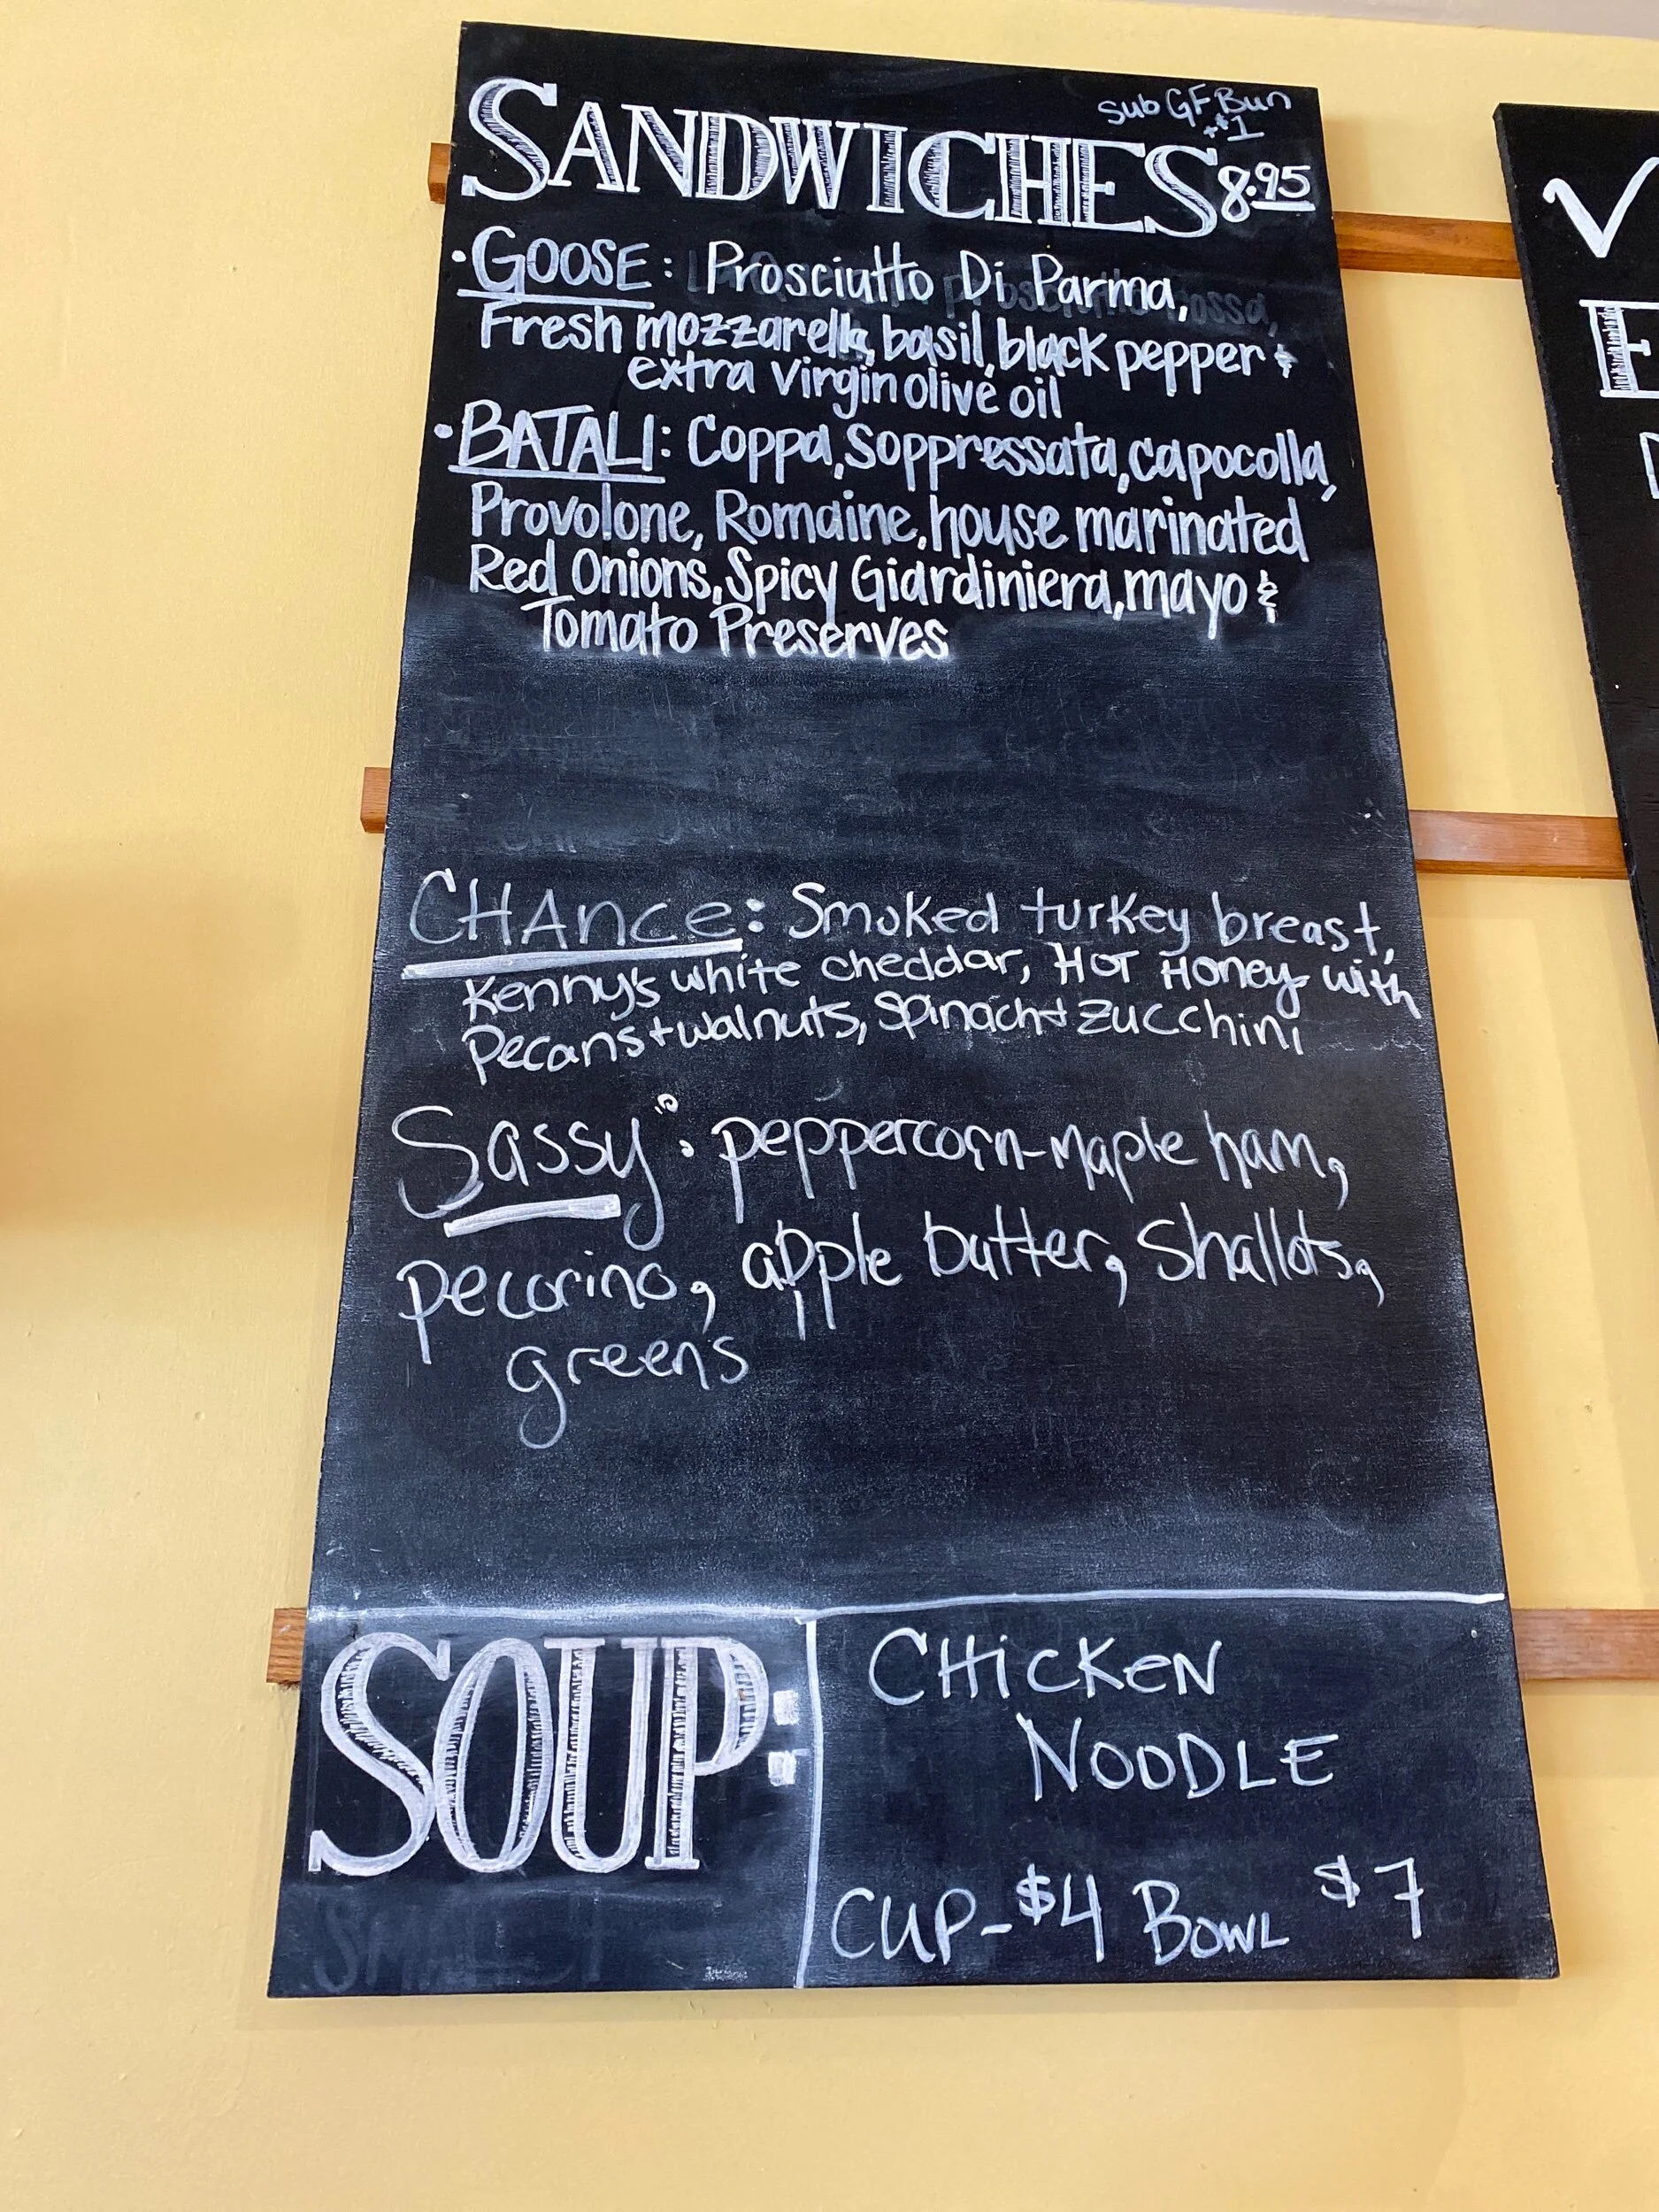 Sub GF Bun
+$1
SANDWICHES 8.95
• GOOSE: Prosciutto Di Parma,
Fresh mozzarella, basil, black pepper &
extra virgin olive oil
• BATALI: Coppa, Soppressata, capocolla,
Provolone, Romaine, house marinated
Red Onions, Spicy Giardiniera, mayo &
Tomato Preserves
CHAnce: Smoked turkey breast,
Kenny's white cheddar, Hot Honey with
Pecans + walnuts, spinach + zucchini
Sassy: peppercorn-maple ham,
pecorino, apple butter, shallots,
greens
SOUP:
CHiCKEN
NOODLE
CUP - $4 BOWL $7